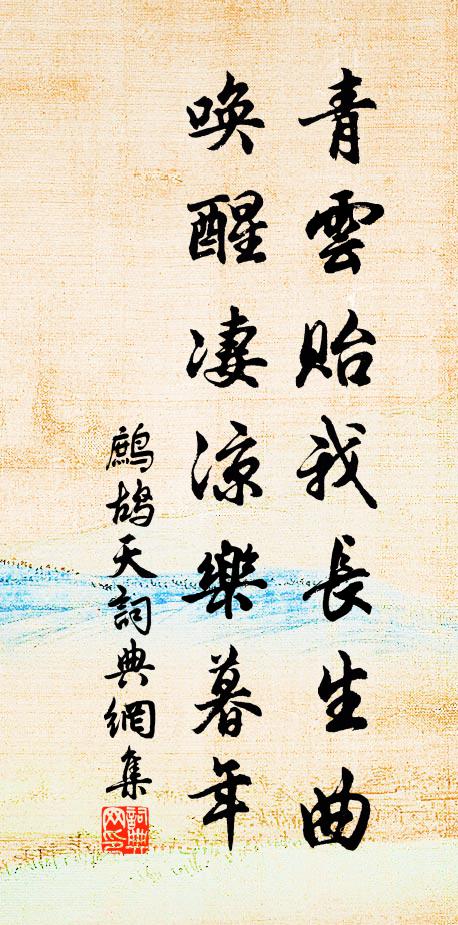 青雲貽我長生曲
喚醒凄涼樂暮年
鷓鴣天詞典網集
詞典網印